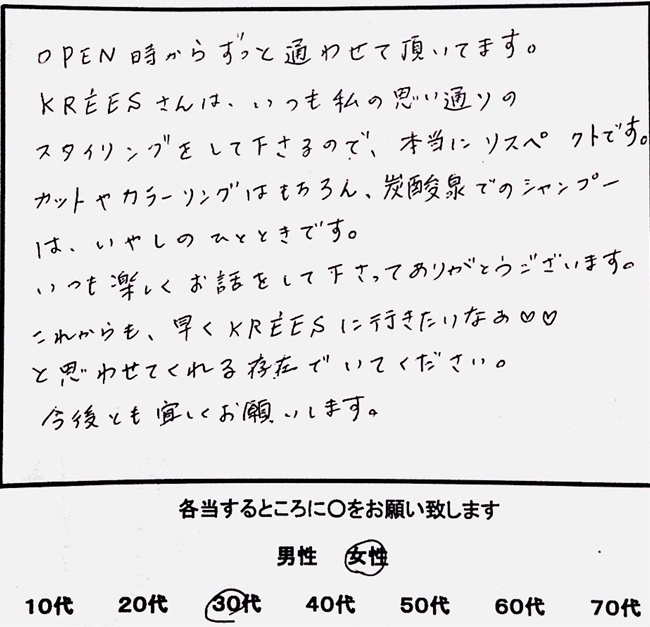 OPEN時からずっと通わせて頂いてます。
KRÉESさんは、いつも私の思い通りの
スタイリングをして下さるので、本当にリスペクトです。
カットやカラーリングはもちろん、炭酸泉でのシャンプー
は、いやしのひとときです。
いつも楽しくお話をして下さってありがとうございます。
これからも、早くKRÉESに行きたいなぁ♡♡
と思わせてくれる存在でいてください。
今後とも宜しくお願いします。
各当するところに〇をお願い致します
男性 女性
10代 20代 30代 40代 50代 60代 70代